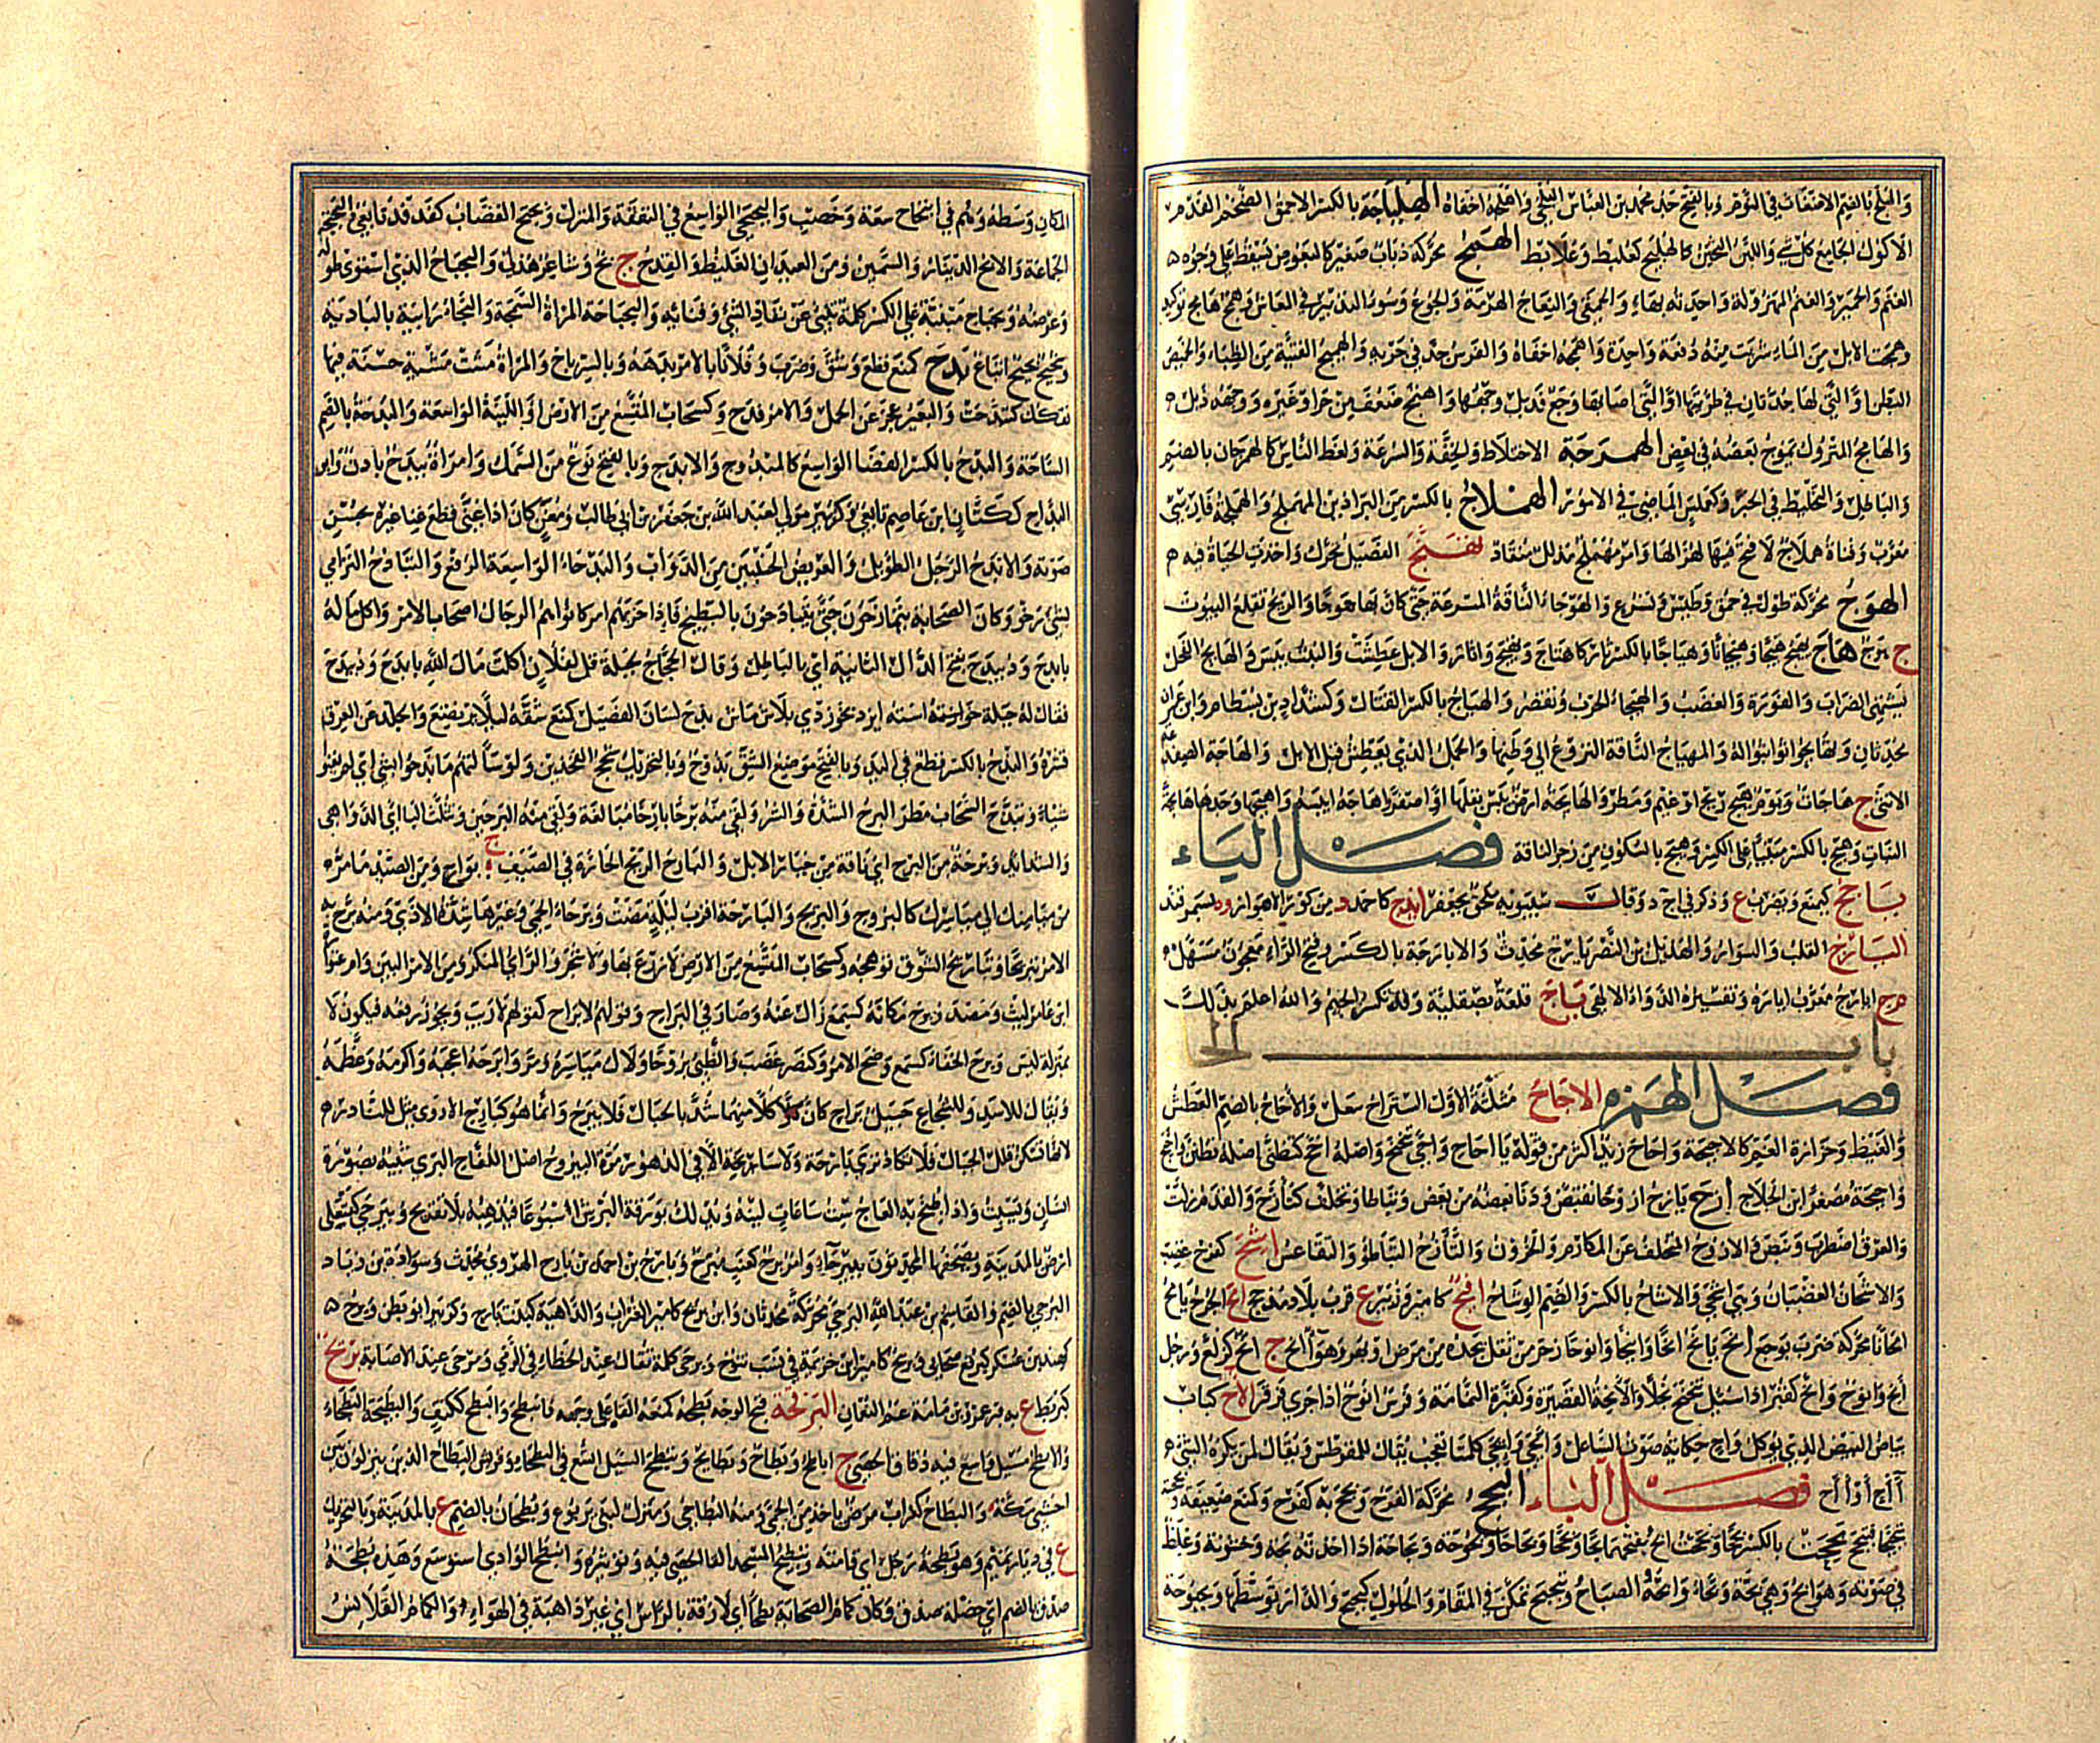 والبلج بالضم الالتفات في النوم وبالفتح جد محمد بن العباس البلجي وافلجه اخفاه الهلباجة بالكسر الاحمق الضخم الفدم
الاكول الجامع كل شر واللبن الخاثر كالهلبج كعلبط وعلابط الهمج محركة ذباب صغير كالبعوض يسقط على وجوه
الغنم والحمير والغنم المهزولة واحدته بهاء والحمقى والنعاج الهرمة والجوع وسوء التدبير في المعاش وهمج هامج توكيد
وهمجت الابل من الماء شربت منه دفعة واحدة واهمج اخفاه والفرس جد في جريه والهميج الفتية من الظباء والخميص
البطن او التي لها جدتان في طرتيها او التي اصابها وجع فذبل وجهها واهتمج ضعف من حر او غيره ووجهه ذبل
والهامج المتروك يموج بعضه في بعض الهمرجة الاختلاط والخفة والسرعة ولغط الناس كالهمرجان بالضم
والباطل والتخليط في الخبر وكعملس الماضي في الامور الهملاج بالكسر من البراذين المهملج والهملجة فارسي
معرب وشاة هملاج لا مخ فيها لهزالها وامر مهملج مذلل منقاد تهنج الفصيل تحرك واخذت الحياة فيه
الهوج محركة طول في حمق وطيش وتسرع والهوجاء الناقة المسرعة حتى كان بها هوجا والريح تقلع البيوت
ج هوج هاج يهيج هيجا وهيجانا وهياجا بالكسر ثار كاهتاج وتهيج واثار والابل عطشت والنبت يبس والهائج الفحل
يشتهي الضراب والفورة والغضب والهيجاء الحرب وتقصر والهياج بالكسر القتال وكشداد بن بسطام وابن عمران
محدثان وتهايجوا تواثبوا للقتال والمهياج الناقة النزوع الى وطنها والجمل الذي يعطش قبل الابل والهاجة الضفدع
الانثى ج هاجات ويوم هيج ريح او غيم ومطر والهائجة ارض يبس بقلها او اصفر واهاجه ايبسه واهيجها وجدها هائجة
النبات وهيج بالكسر مبنيا على الكسر وهيج بالسكون من زجر الناقة فصل الياء
ياجج كيمنع ويضرب ع وذكر في اج د وقال سيبويه ملحق بجعفر ايذج كاحمد د من كور الاهواز و ة بسمرقند
اليارج القلب والسوار والهذيل بن النضر بن يارج محدث والايارجة بالكسر وفتح الراء معجون مسهل م
ج ايارج معرب ايارة وتفسيره الدواء الالهي ياج قلعة بصقلية وقد تكسر الجيم والله اعلم بذلك
باب الحا
فصل الهمزه الاجاح مثلثة الاول الستر اح سعل والاحاح بالضم العطش
والغيظ وحزازة الغم كالاحيحة واحاح زيد اكثر من قوله يا احاح واحى تنحنح واصله احح كتظنى اصله تظنن واحيحة
واحيحة مصغر ابن الجلاح ازح يازح ازوحا تقبض ودنا بعضه من بعض وتباطا وتخلف كتازح والقدم زلت
والعرق اضطرب ونبض والازوح المتخلف عن المكارم والحرون والتازح التباطؤ والتقاعس اشح كفرح غضب
والاشحان الغضبان وهي اشحى والاشاح بالكسر والضم الوشاح افيح كامير وزبير ع قرب بلاد مذحج امح الجرح يامح
امحانا محركة ضرب بوجع انح يانح انحا وانيحا وانوحا زحر من ثقل يجده من مرض او بهر وهو انح ج انح كركع ورجل
انح وانوح وانح كقبر اذا سئل تنحنح بخلا والانحة القصيرة وكقبرة النمامة وفرس انوح اذا جرى فزفر الآح ككتاب
بياض البيض الذي يؤكل واح حكاية صوت الساعل وايحى وايحى كلمتا تعجب يقال للمقرطس ويقال لمن يكره الشيء
آح او اآح فصل الباء البجح محركة الفرح وبجح به كفرح وكمنع ضعيفة وبجحته
تبجيحا فتبجح بححت بالكسر بححا وبححت ابح بفتحهما بحا وبححا وبحاحا وبحوحا وبحوحة وبحاحة اذا اخذته بحة وخشونة وغلظ
في صوته وهو ابح وهي بحة وبحاء وابحه الصياح وتبحبح تمكن في المقام والحلول كبحبح والدار توسطها وبحبوحة
المكان وسطه وهم في ابتحاح سعة وخصب والبحبحي الواسع في النفقة والمنزل وبحبح القصاب كفدفد تابعي والبحبحة
الجماعة والابح الدينار والسمين ومن العيدان الغليظ والقدح ج بح وشاعر هذلي والبحباح الذي استوى طوله
وعرضه وبحباح مبنية على الكسر كلمة تنبئ عن نفاد الشيء وفنائه والبحباحة المراة السمجة والبحاء رابية بالبادية
وبحيح لبحيح اتباع بدح كمنع قطع وشق وضرب وفلانا بالامر بدهه وبالسر باح والمراة مشت مشية حسنة فيها
تفكك كتبدحت والبعير عجز عن الحمل والامر فدح وكسحاب المتسع من الارض او اللينة الواسعة والبدحة بالضم
الساحة والبدح بالكسر الفضا الواسع كالمبدوح والابدح وبالفتح نوع من السمك وامراة بيدح بادن وابن
البداح ككتان ابن عاصم تابعي وكزبير مولى لعبد الله بن جعفر بن ابي طالب ومغن كان اذا غنى قطع غناء غيره بحسن
صوته والابدح الرجل الطويل والعريض الجنبين من الدواب والبدحاء الواسعة الرفغ والتبادح الترامي
بشيء رخو وكان الصحابة يتمازحون حتى يتبادحون بالبطيخ فاذا حزبهم امر كانوا هم الرجال اصحاب الامر واكل ماله
بابدح ودبيدح بفتح الدال الثانية اي بالباطل وقال الحجاج لجبلة قل لفلان اكلت مال الله بابدح ودبيدح
فقال له جبلة خواسته ايزد بخوردي بلاش ماش بذح لسان الفصيل كمنع شقه لئلا يرتضع والجلد عن العرق
قشره والبذح بالكسر قطع في اليد وبالفتح موضع الشق ج بذوح وبالتحريك سحج الفخذين ولو سالتهم ما بذحوا بشيء اي لم يغنوا
شيئا وتبذح السحاب مطر البرح الشدة والشر ولقي منه برحا بارحا مبالغة ولقي منه البرحين وتثلث الباء اي الدواهي
والشدائد وبرحة من البرح اي ناقة من خيار الابل والبارح الريح الحارة في الصيف ج بوارح ومن الصيد ما مر
من ميامنك الى مياسرك كالبروح والبريح والبارحة اقرب ليلة مضت وبرحاء الحمى وغيرها شدة الاذى ومنه برح به
الامر تبريحا وتباريح الشوق توهجه وكسحاب المتسع من الارض لا زرع بها ولا شجر والراي المنكر ومن الامر البين وام عثوارة
ابن عامر بن ليث ومصدر برح مكانه كسمع زال عنه وصار في البراح وقولهم لا براح كقولهم لا ريب ويجوز رفعه فيكون لا
بمنزلة ليس وبرح الخفاء كسمع وضح الامر وكنصر غضب والظبي بروحا ولاك مياسره ومر وابرحه اعجبه واكرمه وعظمه
ويقال للاسد وللشجاع حبيل براح كان كلا منهما شد بالحبال فلا يبرح وانما هو كبارح الاروى مثل للنادر
لانها تسكن قلل الجبال فلا تكاد ترى بارحة ولا سانحة الا في الدهور مرة اليبروح اصل اللفاح البري شبيه بصورة
انسان ويسبت واذا طبخ به العاج ست ساعات لينه ويدلك بورقه البرش اسبوعا فيذهبه بلا تقريح وبيرحى كفيعلى
ارض بالمدينة ويصحفها المحدثون بيرحاء وامر برح كعنب مبرح وبارح بن احمد بن بارح الهروي محدث وسوادة بن زياد
البرحي بالضم والقاسم بن عبد الله البرحي محركة محدثان وابن بريح كامير الغراب والداهية كبنت بارح وكزبير ابو بطن وبرح
كهند بن عسكر كبرقع صحابي وبريح كامير ابن خزيمة في نسب تنوخ وبرحى كلمة تقال عند الخطاء في الرمي ومرحى عند الاصابة بربح
كبربط ع به قبر عمرو بن مامة عم النعمان البرقحة قبح الوجه بطحه كمنعه القاه على وجهه فانبطح والبطح ككتف والبطيحة البطحاء
والابطح مسيل واسع فيه دقاق الحصى ج اباطح وبطاح وبطائح وتبطح السيل اتسع في البطحاء وقريش البطاح الذين ينزلون بين
اخشبي مكة والبطاح كغراب مرض ياخذ من الحمى ومنه البطاحي ومنزل لبني يربوع وبطحان بالضم ع بالمدينة وبالتحريك
ع في ديار تميم وهو بطحة رجل اي قامته وتبطيح المسجد القاء الحصى فيه وتوثيره وانبطح الوادي استوسع وهذه بطحة
صدق بالضم اي خصلة صدق وكان كمام الصحابة بطحا اي لازقة بالراس اي غير ذاهبة في الهواء والكمام القلانس